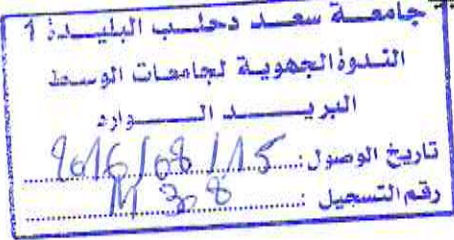 جامعة سعد دحلب البليدة 1
الندوة الجهوية لجامعات الوسط
البريد الوارد
تاريخ الوصول: 2016/08/15
رقم التسجيل: 308